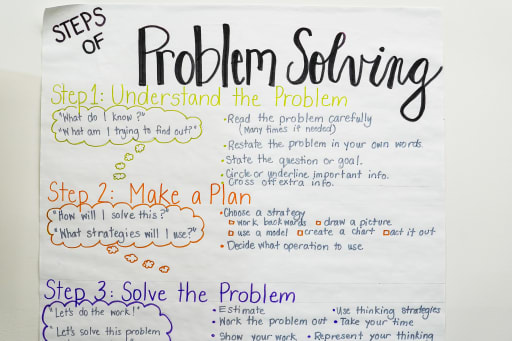 STEPS OF Problem Solving
Step 1: Understand the Problem
"What do I know?"
"What am I trying to find out?"
• Read the problem carefully
(Many times if needed)
• Restate the problem in your own words.
• State the question or goal.
• Circle or underline important info.
Cross off extra info.
Step 2: Make a Plan
"How will I solve this?"
"What strategies will I use?"
• Choose a strategy
□ work backwards □ draw a picture
□ use a model □ create a chart □ act it out
• Decide what operation to use
Step 3: Solve the Problem
"Let's do the work!"
"Let's solve this problem
• Estimate • Use thinking strategies
• Work the problem out • Take your time
• Show your work • Represent your thinking